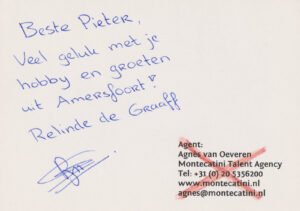 Beste Pieter,
Veel geluk met je
hobby en groeten
uit Amersfoort!
Relinde de Graaff
Agent:
Agnes van Oeveren
Montecatini Talent Agency
Tel: +31 (0) 20 5356200
www.montecatini.nl
agnes@montecatini.nl